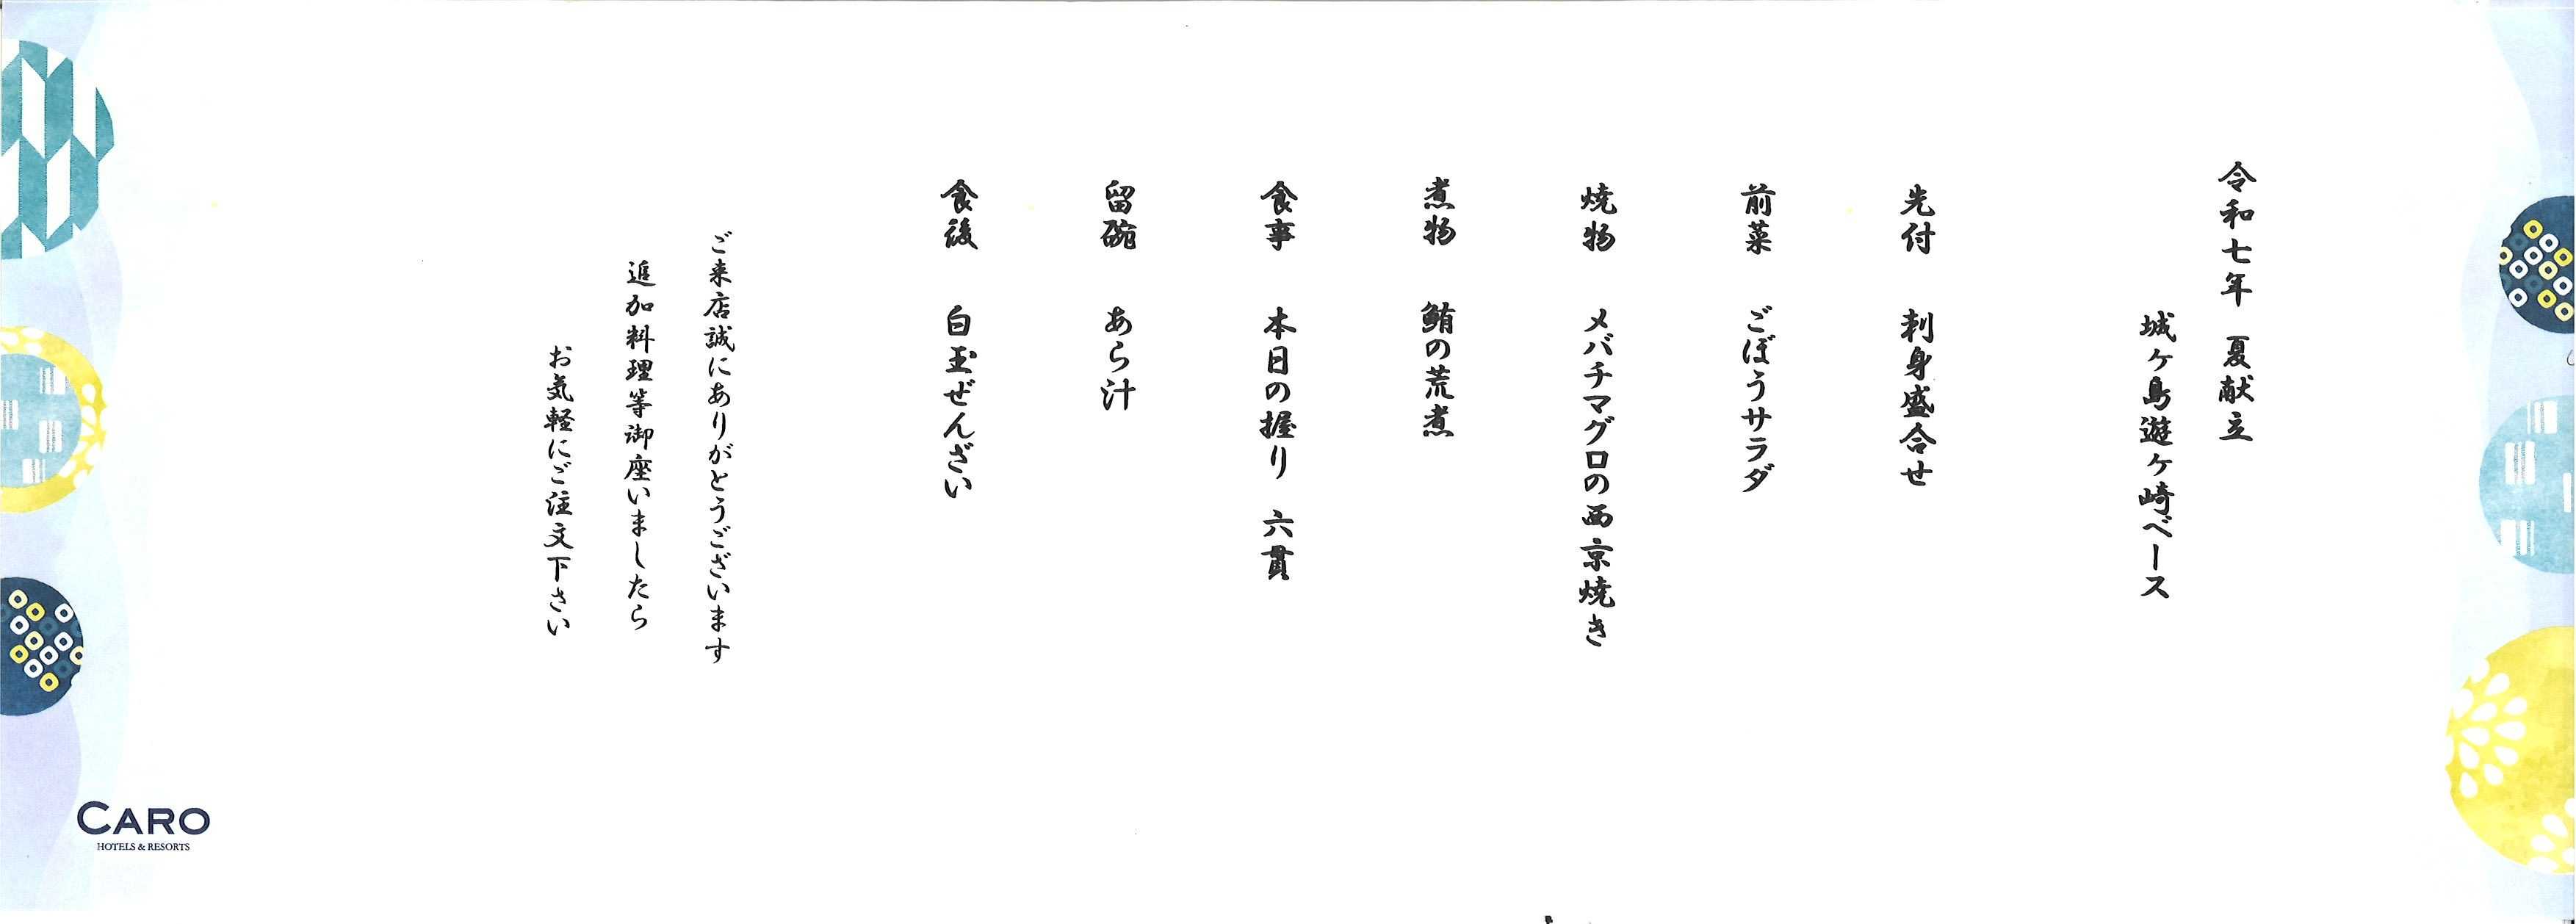 令和七年 夏献立
城ヶ島遊ヶ崎ベース
先付 刺身盛合せ
前菜 ごぼうサラダ
焼物 メバチマグロの西京焼き
煮物 鮪の荒煮
食事 本日の握り 六貫
留碗 あら汁
食後 白玉ぜんざい
ご来店誠にありがとうございます
追加料理等御座いましたら
お気軽にご注文下さい
CARO
HOTELS & RESORTS